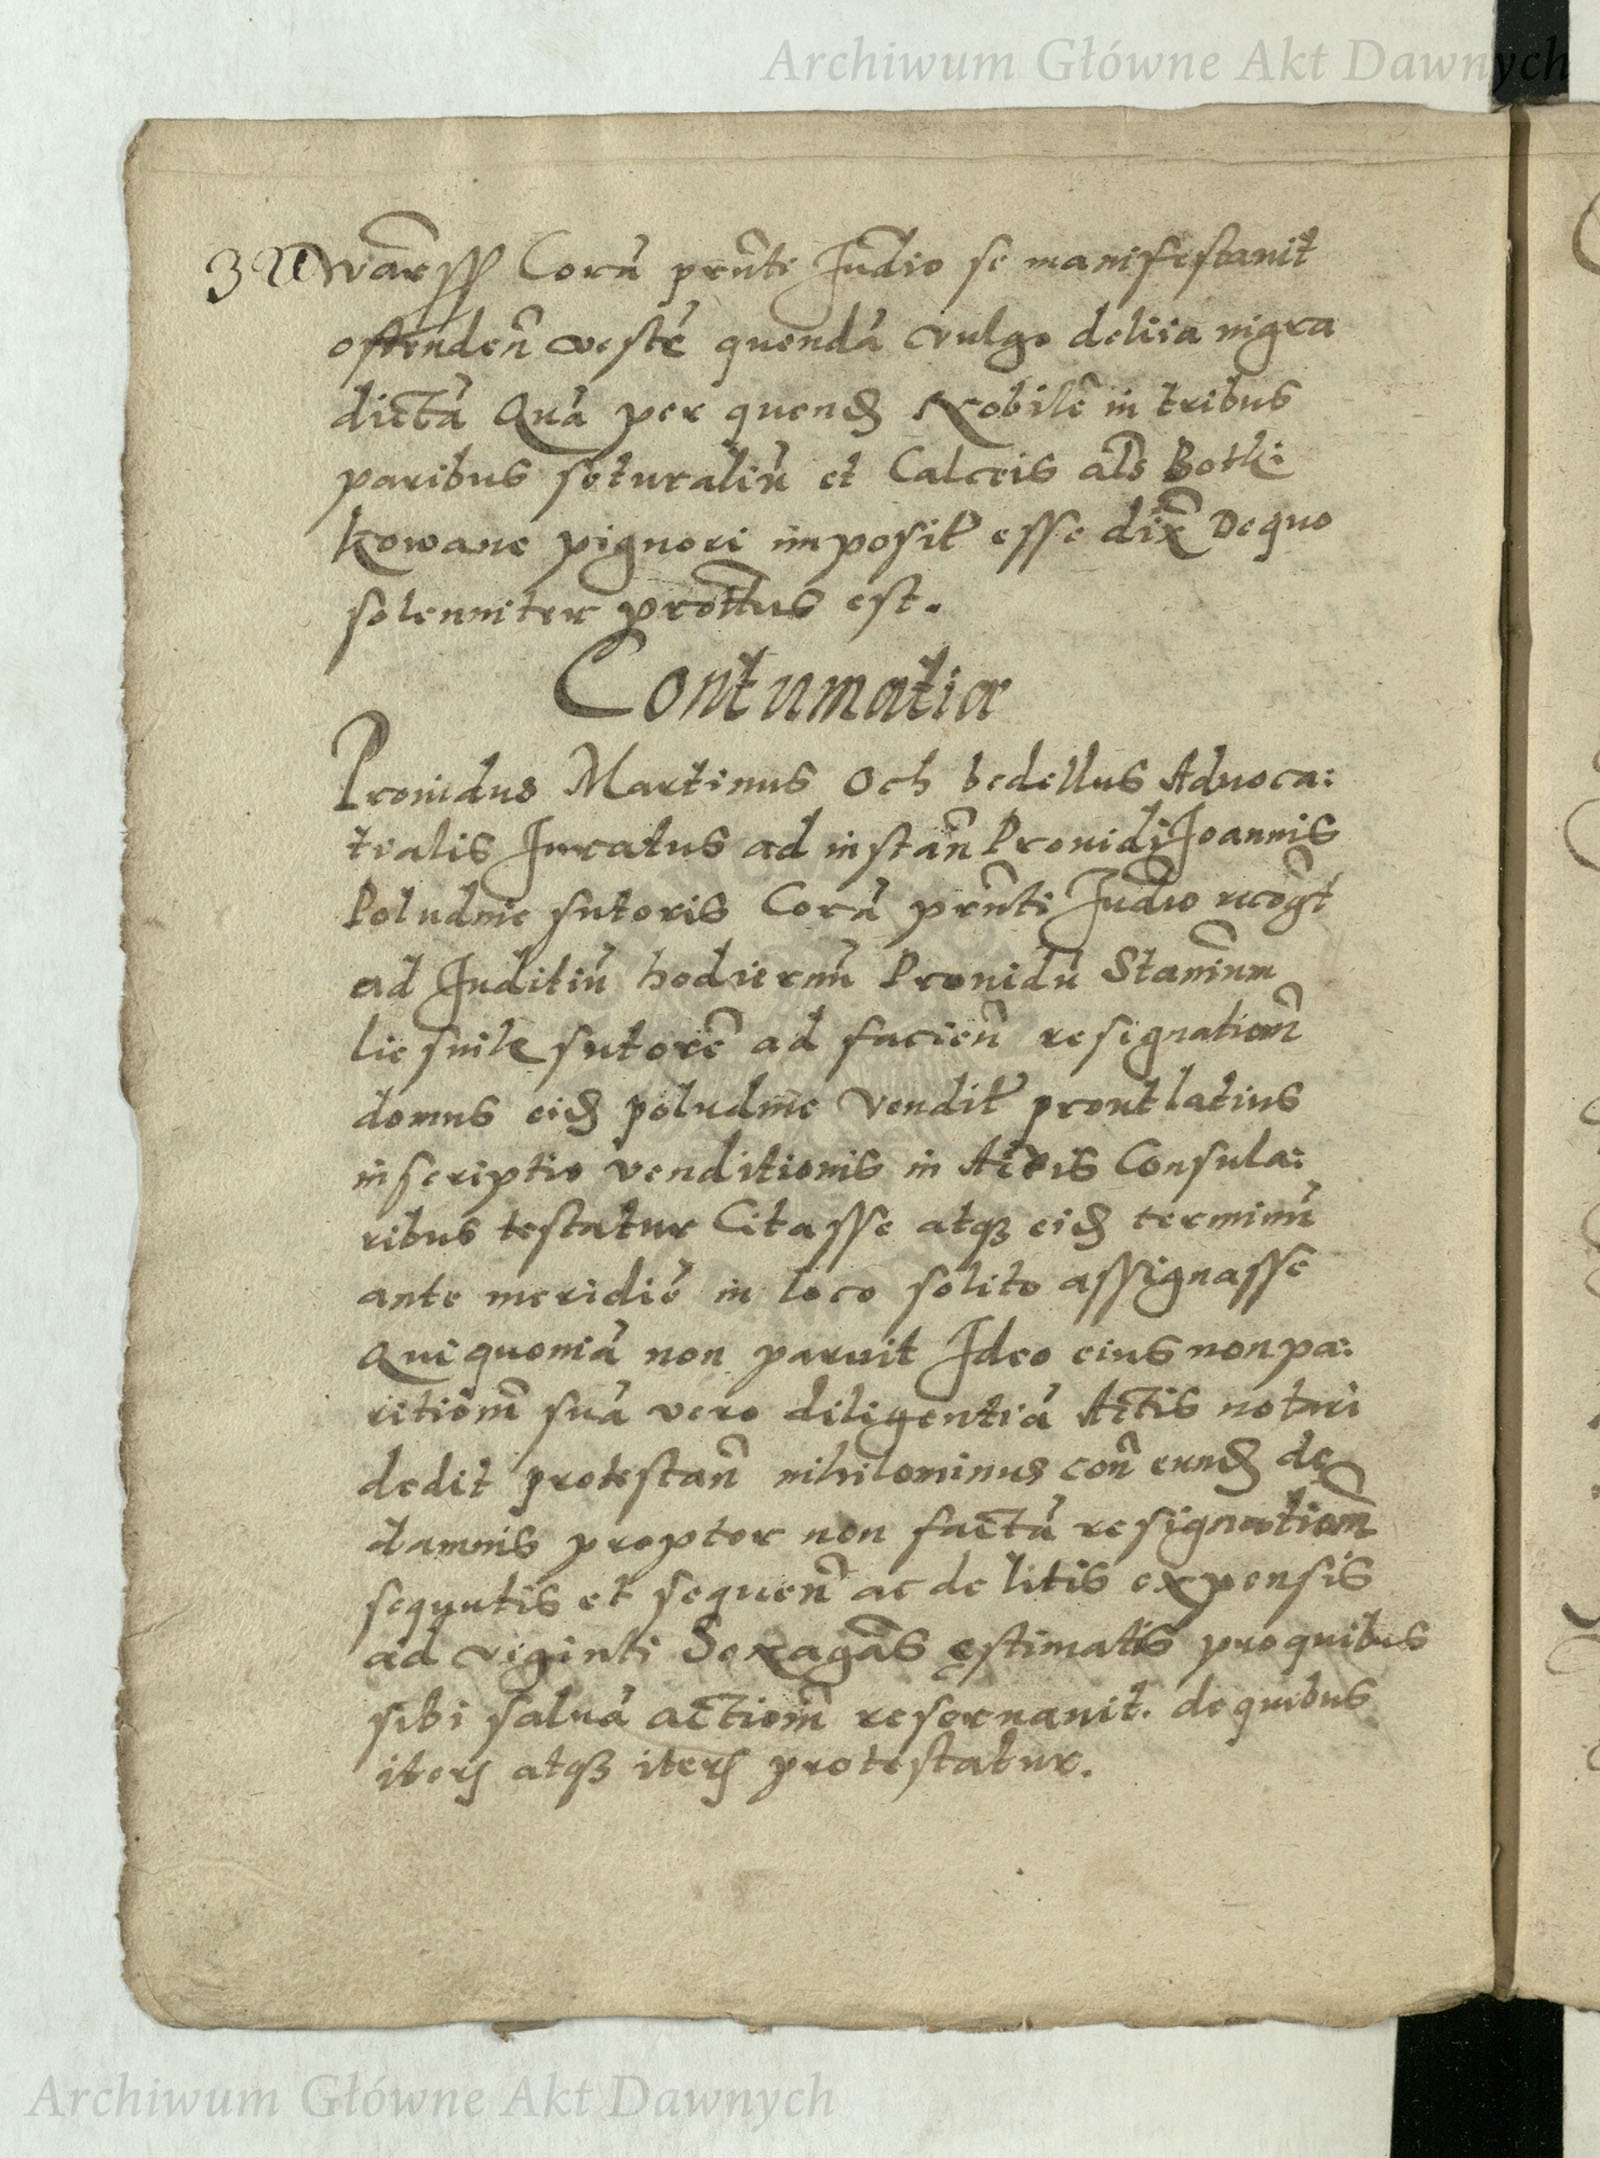 Archiwum Główne Akt Dawnych
3 Corā prn̄te Iud̄io se manifestauit
ostenden̄ vestē quendā vulgo deliia nigra
dictā Quā per quend̄ Nobilē in tribus
paribus soturaliū et Calceis al̄s Bothi
kowane pignori imposit̄ esse dix̄ De quo
solenniter prot̄tus est.
Contumatia
Prouidus Martinus Och bedellus Aduoca:
tialis Iuratus ad instan̄ Prouidi Ioannis
Poludnie sutoris Corā prn̄ti Iud̄io recoḡt
ad Iuditiū hodiernū Prouidū
sutorē ad facien̄ resignatiom̄
domus eid̄ poludnie vendit̄ prout latius
inscriptio venditionis in Actis Consula:
ribus testatur Citasse atq3 eid̄ terminū
ante meridiē in loco solito assignasse
Qui quoniā non paruit Ideo eius non pa:
ritiom̄ suā vero diligentiā Actis notari
dedit protestan̄ nihilominus con̄ eund̄ de
damnis propter non factā resignatiom̄
sequutis et sequen̄ ac de litis expensis
ad viginti Sexagās ęstimatis pro quibus
sibi saluā actiom̄ reseruauit. de quibus
iter̄ atq3 iter̄ protestatur.
Archiwum Główne Akt Dawnych